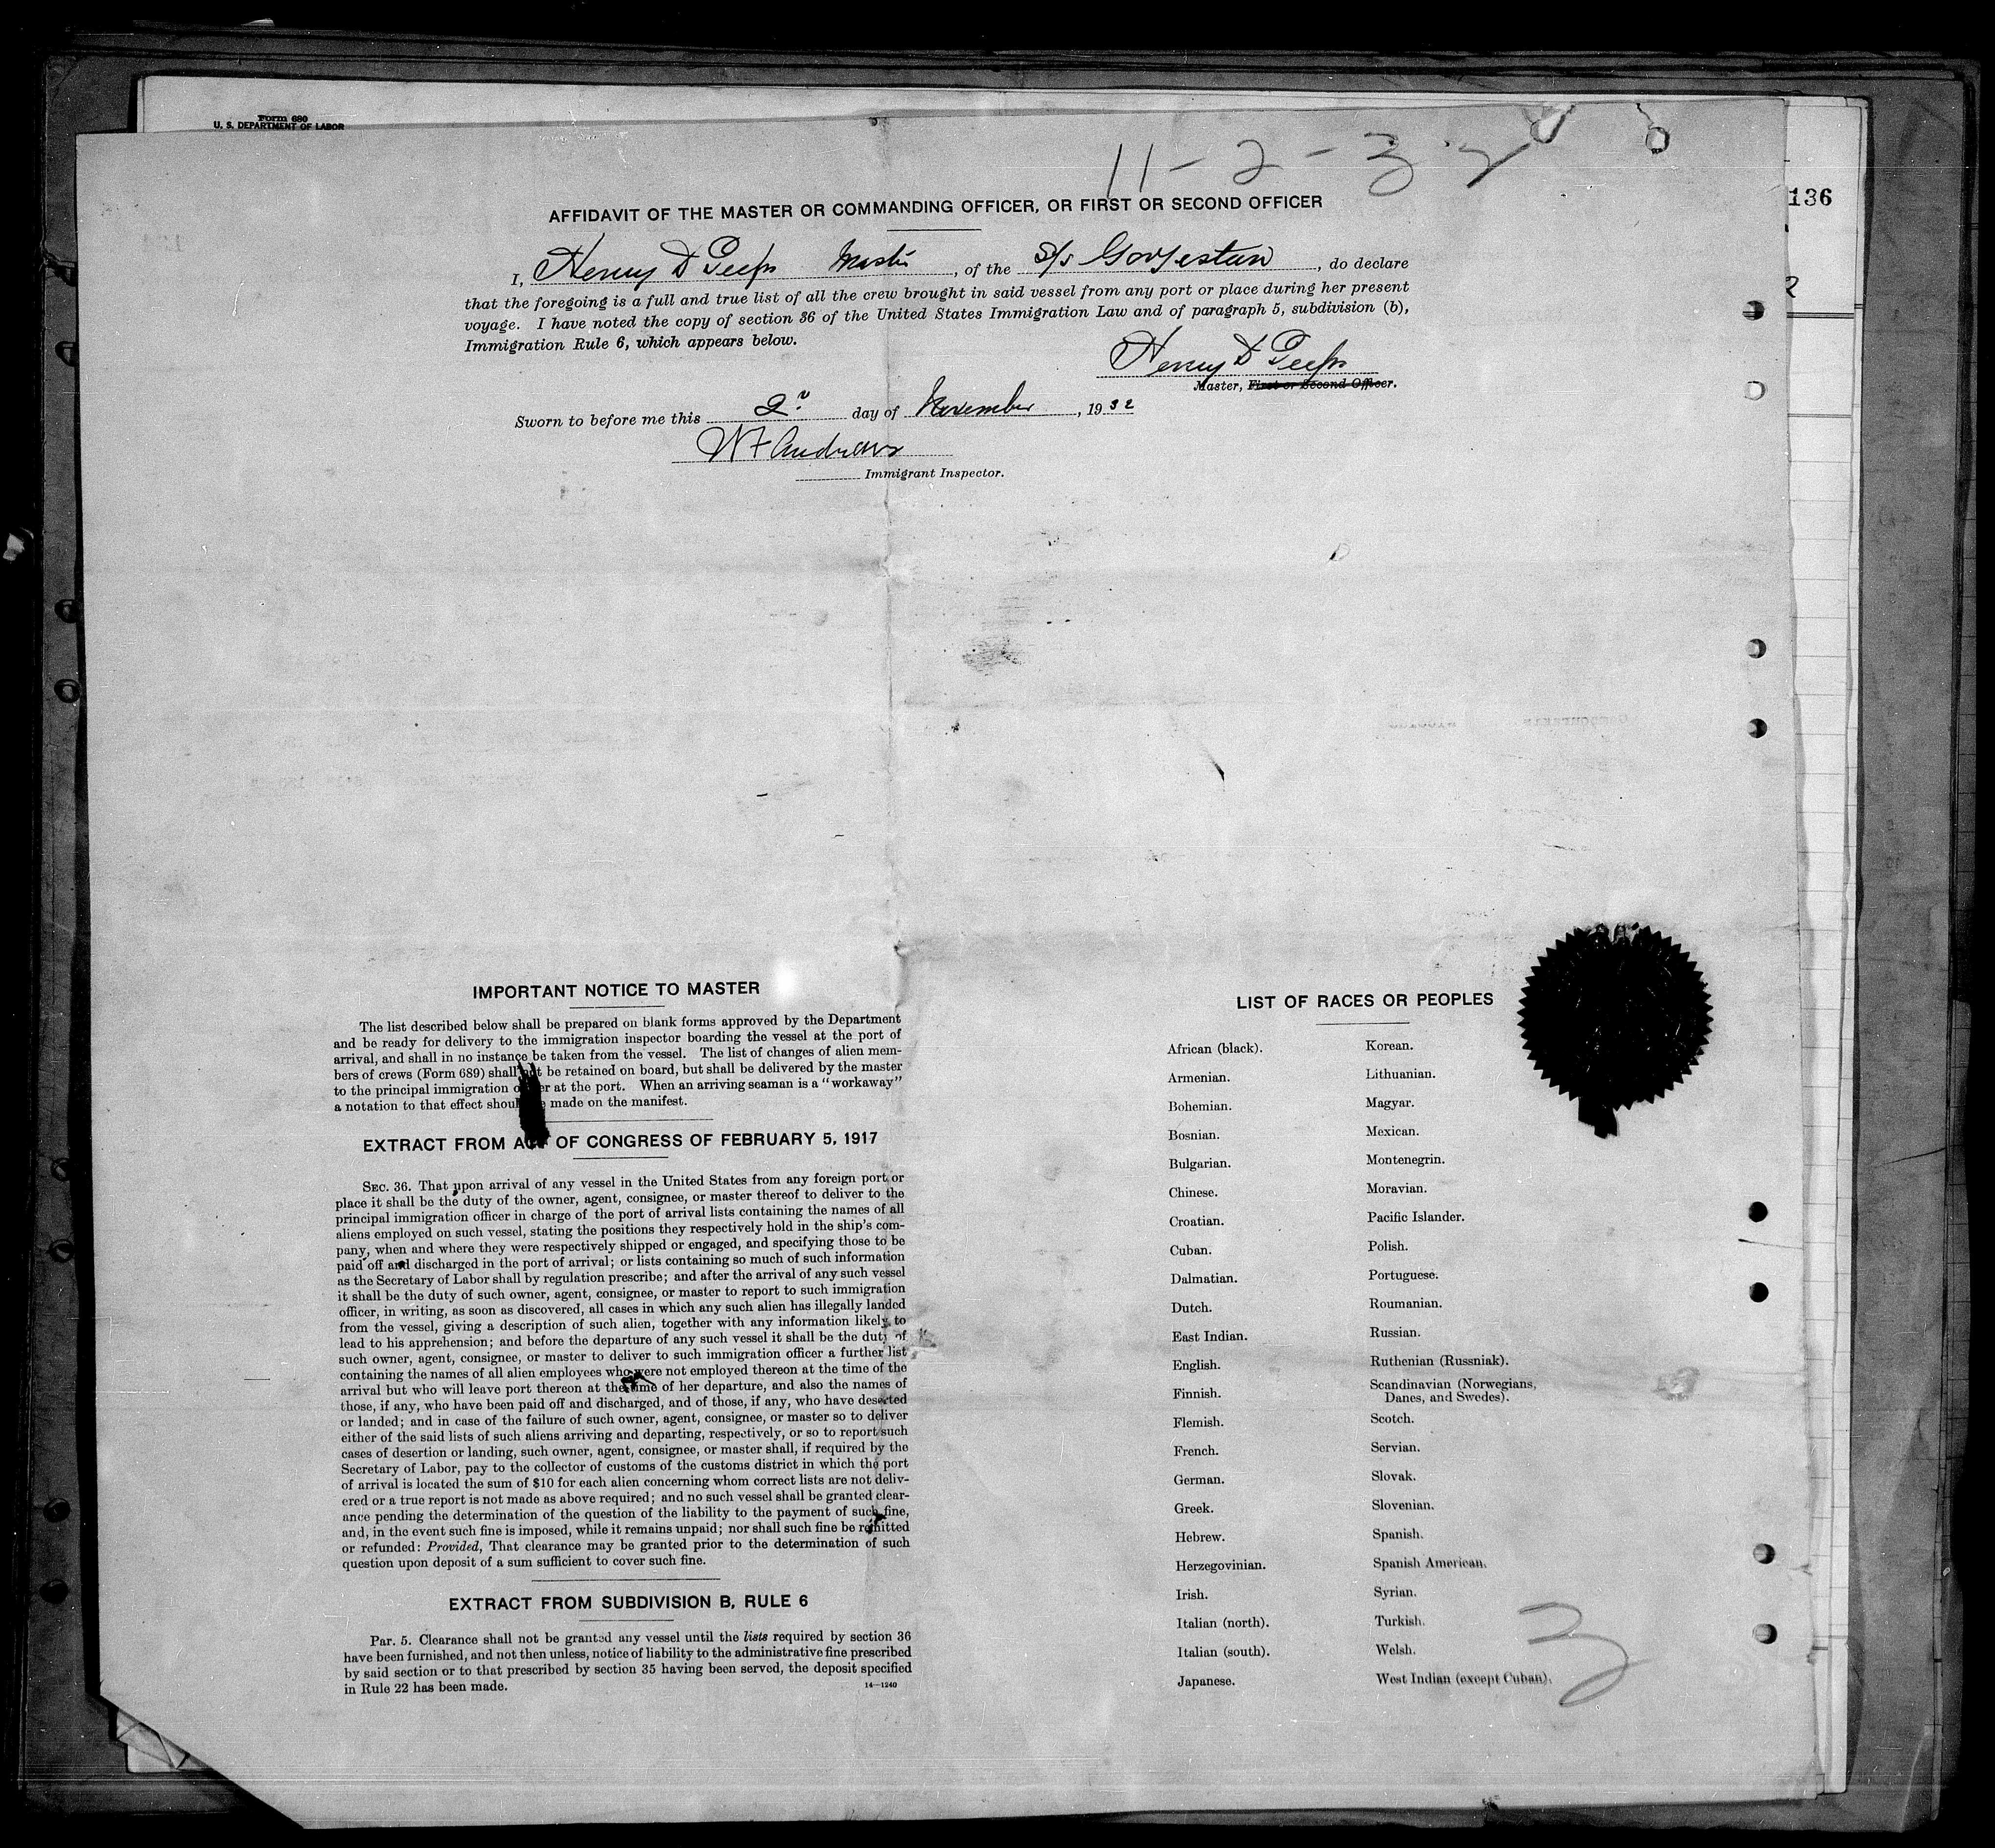 Form 680
U. S. DEPARTMENT OF LABOR
11-2-32
136
2
AFFIDAVIT OF THE MASTER OR COMMANDING OFFICER, OR FIRST OR SECOND OFFICER
I, Henry D Peeps Master, of the S/s Gorjestan, do declare
that the foregoing is a full and true list of all the crew brought in said vessel from any port or place during her present
voyage. I have noted the copy of section 36 of the United States Immigration Law and of paragraph 5, subdivision (b),
Immigration Rule 6, which appears below.
Henry D Peeps
Master, First or Second Officer.
Sworn to before me this 2nd day of November, 1932
W F Andrews
Immigrant Inspector.
IMPORTANT NOTICE TO MASTER
The list described below shall be prepared on blank forms approved by the Department
and be ready for delivery to the immigration inspector boarding the vessel at the port of
arrival, and shall in no instance be taken from the vessel. The list of changes of alien mem-
bers of crews (Form 689) shall not be retained on board, but shall be delivered by the master
to the principal immigration officer at the port. When an arriving seaman is a "workaway"
a notation to that effect should be made on the manifest.
EXTRACT FROM ACT OF CONGRESS OF FEBRUARY 5, 1917
SEC. 36. That upon arrival of any vessel in the United States from any foreign port or
place it shall be the duty of the owner, agent, consignee, or master thereof to deliver to the
principal immigration officer in charge of the port of arrival lists containing the names of all
aliens employed on such vessel, stating the positions they respectively hold in the ship's com-
pany, when and where they were respectively shipped or engaged, and specifying those to be
paid off and discharged in the port of arrival; or lists containing so much of such information
as the Secretary of Labor shall by regulation prescribe; and after the arrival of any such vessel
it shall be the duty of such owner, agent, consignee, or master to report to such immigration
officer, in writing, as soon as discovered, all cases in which any such alien has illegally landed
from the vessel, giving a description of such alien, together with any information likely to
lead to his apprehension; and before the departure of any such vessel it shall be the duty of
such owner, agent, consignee, or master to deliver to such immigration officer a further list
containing the names of all alien employees who were not employed thereon at the time of the
arrival but who will leave port thereon at the time of her departure, and also the names of
those, if any, who have been paid off and discharged, and of those, if any, who have deserted
or landed; and in case of the failure of such owner, agent, consignee, or master so to deliver
either of the said lists of such aliens arriving and departing, respectively, or so to report such
cases of desertion or landing, such owner, agent, consignee, or master shall, if required by the
Secretary of Labor, pay to the collector of customs of the customs district in which the port
of arrival is located the sum of $10 for each alien concerning whom correct lists are not deliv-
ered or a true report is not made as above required; and no such vessel shall be granted clear-
ance pending the determination of the question of the liability to the payment of such fine,
and, in the event such fine is imposed, while it remains unpaid; nor shall such fine be remitted
or refunded: Provided, That clearance may be granted prior to the determination of such
question upon deposit of a sum sufficient to cover such fine.
EXTRACT FROM SUBDIVISION B, RULE 6
Par. 5. Clearance shall not be granted any vessel until the lists required by section 36
have been furnished, and not then unless, notice of liability to the administrative fine prescribed
by said section or to that prescribed by section 35 having been served, the deposit specified
in Rule 22 has been made.
14—1240
LIST OF RACES OR PEOPLES
African (black).
Armenian.
Bohemian.
Bosnian.
Bulgarian.
Chinese.
Croatian.
Cuban.
Dalmatian.
Dutch.
East Indian.
English.
Finnish.
Flemish.
French.
German.
Greek.
Hebrew.
Herzegovinian.
Irish.
Italian (north).
Italian (south).
Japanese.
Korean.
Lithuanian.
Magyar.
Mexican.
Montenegrin.
Moravian.
Pacific Islander.
Polish.
Portuguese.
Roumanian.
Russian.
Ruthenian (Russniak).
Scandinavian (Norwegians,
Danes, and Swedes).
Scotch.
Servian.
Slovak.
Slovenian.
Spanish.
Spanish American.
Syrian.
Turkish.
Welsh.
West Indian (except Cuban).
3